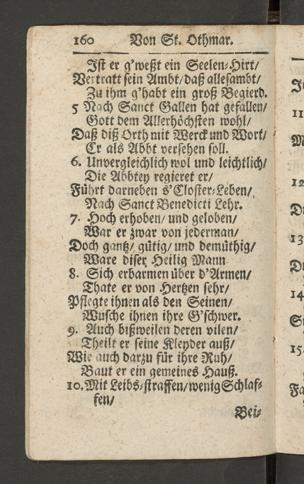 160 Von St. Othmar.
Ist er g'weßt ein Seelen-Hirt/
Vertratt sein Ambt/daß allesambt/
Zu ihm g'habt ein groß Begierd.
5 Nach Sanct Gallen hat gefallen/
Gott dem Allerhöchsten wohl/
Daß diß Orth mit Werck und Wort/
Er als Abbt versehen soll.
6. Unvergleichlich wol und leichtlich/
Die Abbtey regieret er/
Führt darneben s'Closter-Leben/
Nach Sanct Benedicti Lehr.
7. Hoch erhoben/ und geloben/
War er zwar von jederman/
Doch gantz/ gütig/ und demüthig/
Ware diser Heilig Mann
8. Sich erbarmen über d'Armen/
Thate er von Hertzen sehr/
Pflegte ihnen als den Seinen/
Wusche ihnen ihre G'schwer.
9. Auch bißweilen deren vilen/
Theilt er seine Kleyder auß/
Wie auch darzu für ihre Ruh/
Baut er ein gemeines Hauß.
10. Mit Leibs-straffen/wenig Schlaf-
fen/
Bei-
11
12
13
14
15